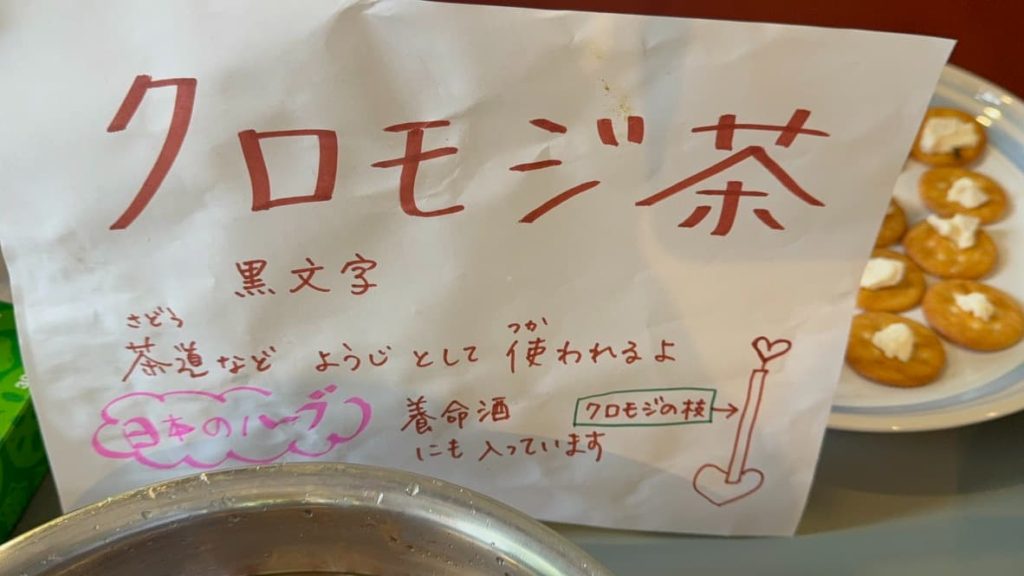 クロモジ茶
黒文字
さどう つか
茶道など ようじ として 使われるよ
日本のハーブ
養命酒
にも 入っています
クロモジの枝